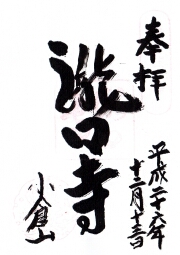 奉拝
平成二十六年
十二月十三日
滝口寺
小倉山